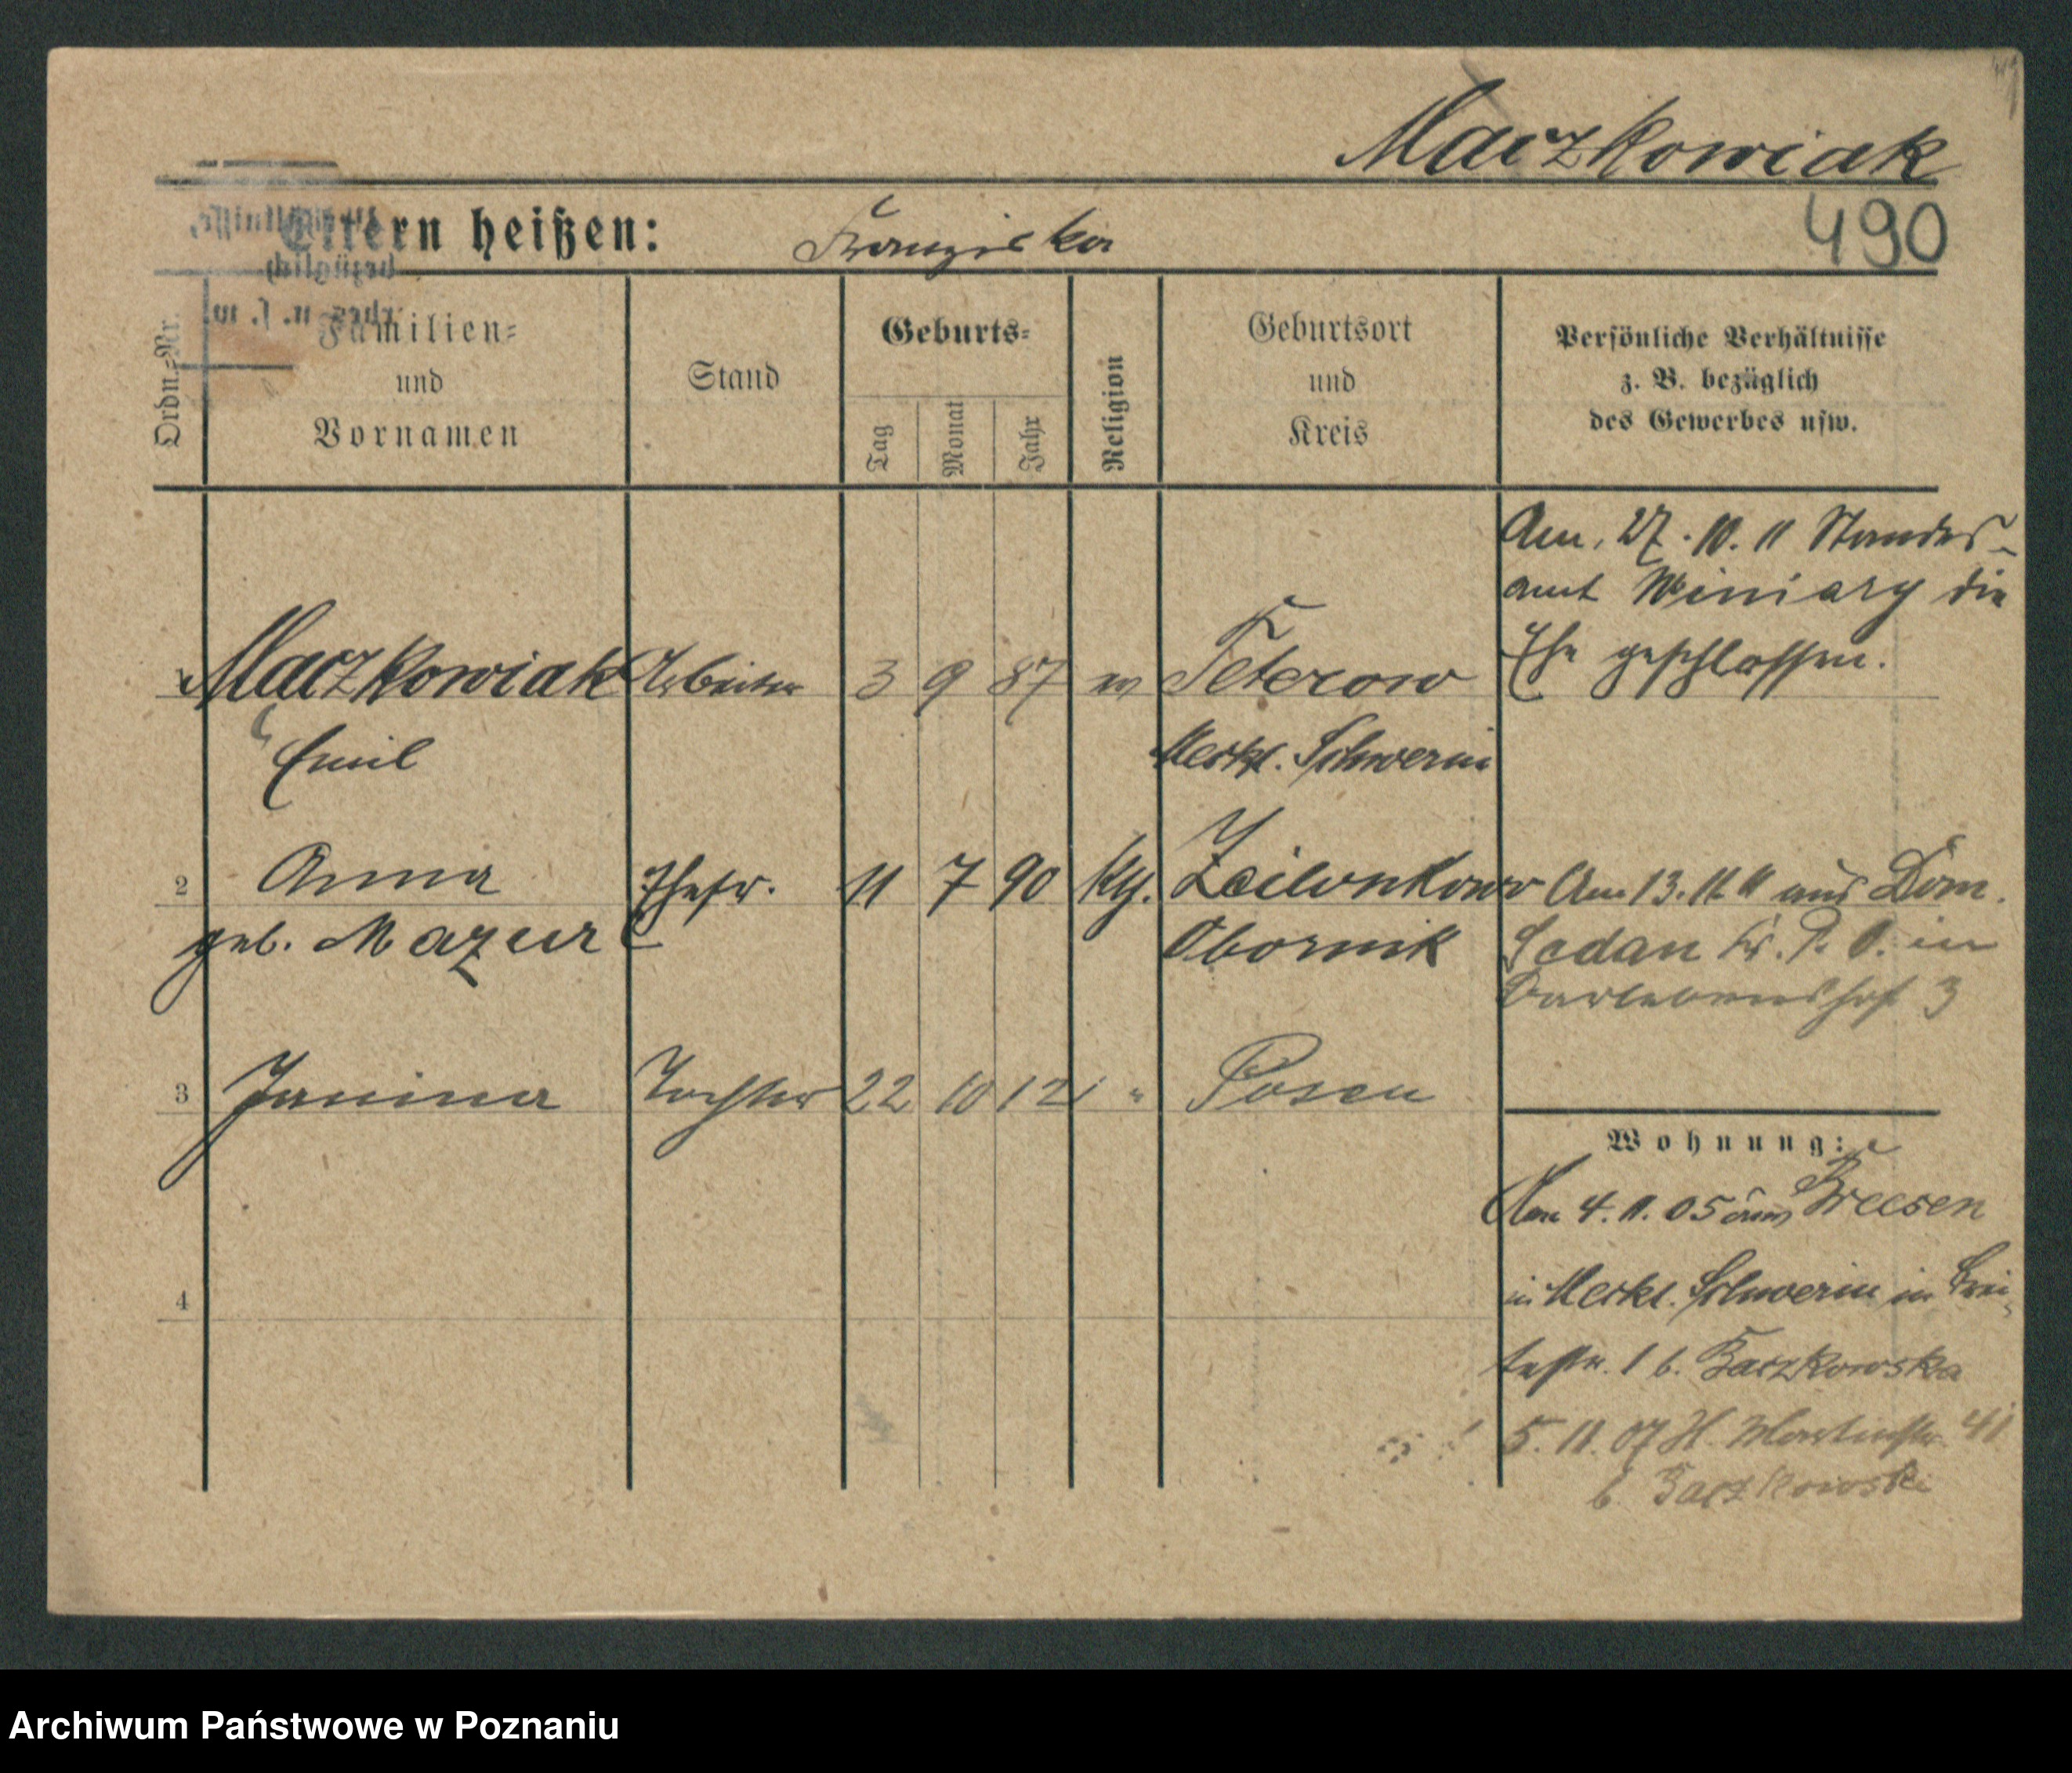 Maczkowiak
Eltern heißen: Franziska
490
Ordn.-Nr.
Familien-
und
Vornamen
Stand
Geburts-
Tag
Monat
Jahr
Religion
Geburtsort
und
Kreis
Persönliche Verhältnisse
z. B. bezüglich
des Gewerbes usw.
Am 27.10.11 Standes-
amt Winiary die
Ehe geschlossen.
1 Maczkowiak Arbeiter 3 9 87 Teterow
Emil Meckl. Schwerin
2 Anna Ehefr. 11 7 90 kth. Am 13.11.11 aus Dom.
geb. Mazur Obornik Sedan Kr. P. O. in
3
3 Janina Tochter 22 10 12 " Posen
Wohnung:
Am 4.11.05 aus Breesen
in Meckl. Schwerin in Brei-
testr. 1 b. Baczkowska
5.11.07 St. Martinstr. 41
b. Baczkowski
4
Archiwum Państwowe w Poznaniu